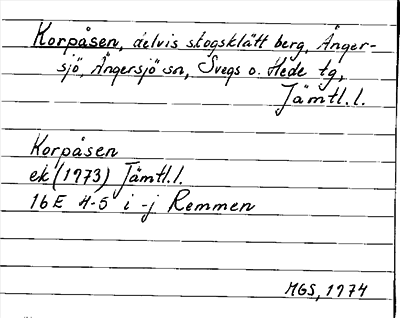 Korpåsen, delvis skogsklätt berg, Änger-
sjö, Ängersjö sn, Svegs o. Hede tg,
Jämtl.l.
Korpåsen
ek (1973) Jämtl.l.
16E 4-5 i-j Remmen
MGS, 1974